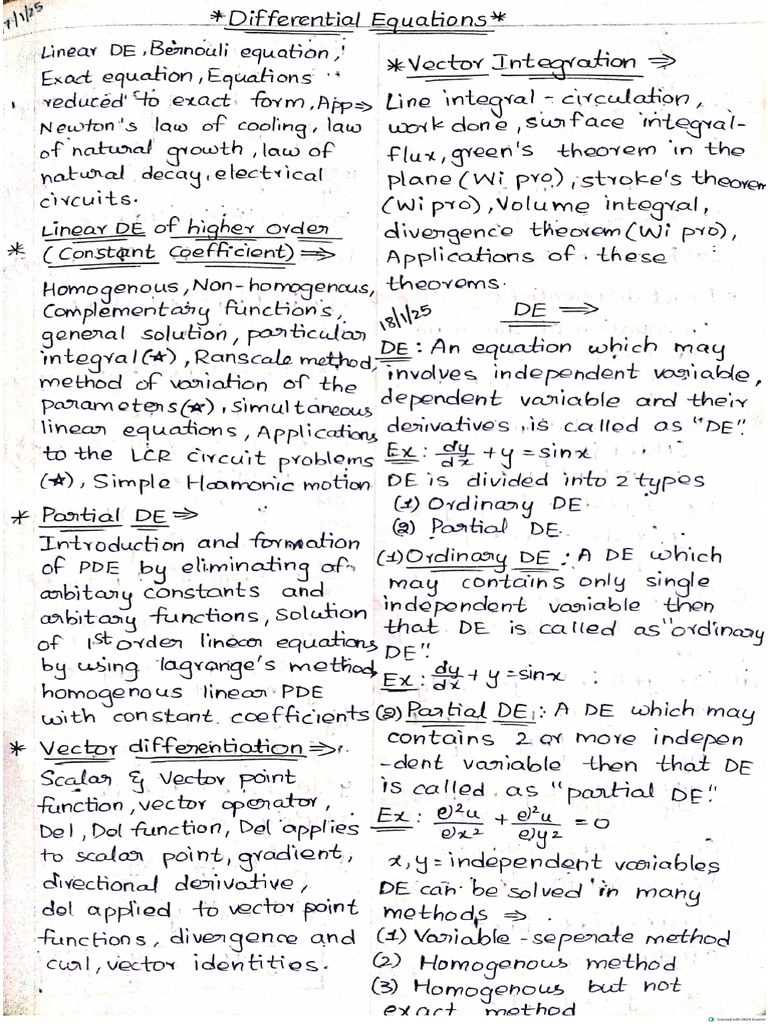 7/1/25
*Differential Equations*
Linear DE, Bernouli equation,
Exact equation, Equations
reduced to exact form, App⇒
Newton's law of cooling, law
of natural growth, law of
natural decay, electrical
circuits.
Linear DE of higher order
* (Constant Coefficient) ⇒
Homogenous, Non-homogenous,
Complementary functions,
general solution, particular
integral(☆), Ranscale method,
method of variation of the
parameters(☆), simultaneous
linear equations, Applications
to the LCR circuit problems
(☆), Simple Harmonic motion
* Partial DE ⇒
Introduction and formation
of PDE by eliminating of
arbitary constants and
arbitary functions, solution
of 1st order linear equations
by using lagrange's method,
homogenous linear PDE
with constant coefficients
* Vector differentiation ⇒
Scalar & vector point
function, vector operator,
Del, Dol function, Del applies
to scalar point, gradient,
directional derivative,
del applied to vector point
functions, divergence and
curl, vector identities.
*Vector Integration ⇒
Line integral - circulation,
work done, surface integral-
flux, green's theorem in the
plane (Wi pro), stroke's theorem
(Wi pro), Volume integral,
divergence theorem (Wi pro),
Applications of these
theorems.
18/1/25 DE ⇒
DE: An equation which may
involves independent variable,
dependent variable and their
derivatives is called as "DE".
Ex: dy/dx + y = sinx
DE is divided into 2 types
(1) Ordinary DE.
(2) Partial DE.
(1) Ordinary DE: A DE which
may contains only single
independent variable then
that DE is called as "ordinary
DE".
Ex: dy/dx + y = sinx
(2) Partial DE: A DE which may
contains 2 or more indepen
-dent variable then that DE
is called as "partial DE".
Ex: ∂²u/∂x² + ∂²u/∂y² = 0
x, y = independent variables
DE can be solved in many
methods ⇒
(1) Variable-seperate method
(2) Homogenous method
(3) Homogenous but not
exact method
Scanned with OKEN Scanner